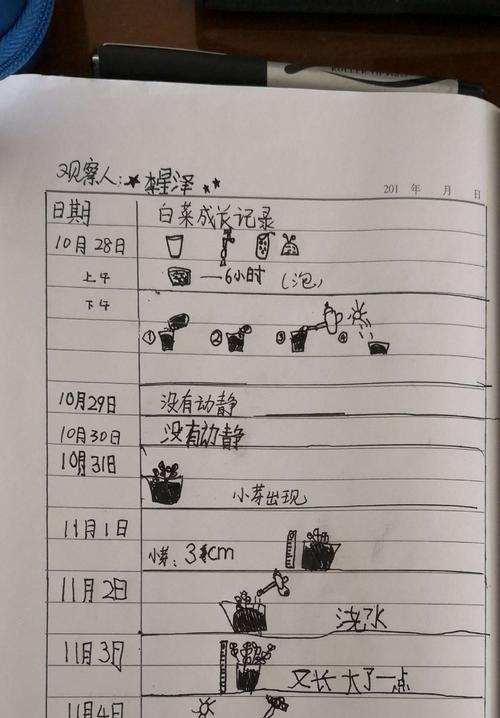 观察人: 李星泽
201 年 月 日
日期 白菜成长记录
10月28日
上午 6小时 (泡)
下午
① ② ③ ④
10月29日 没有动静
10月30日 没有动静
10月31日
小芽出现
11月1日
小芽: 3cm
11月2日
浇水
11月3日
又长大了一点
11月4日